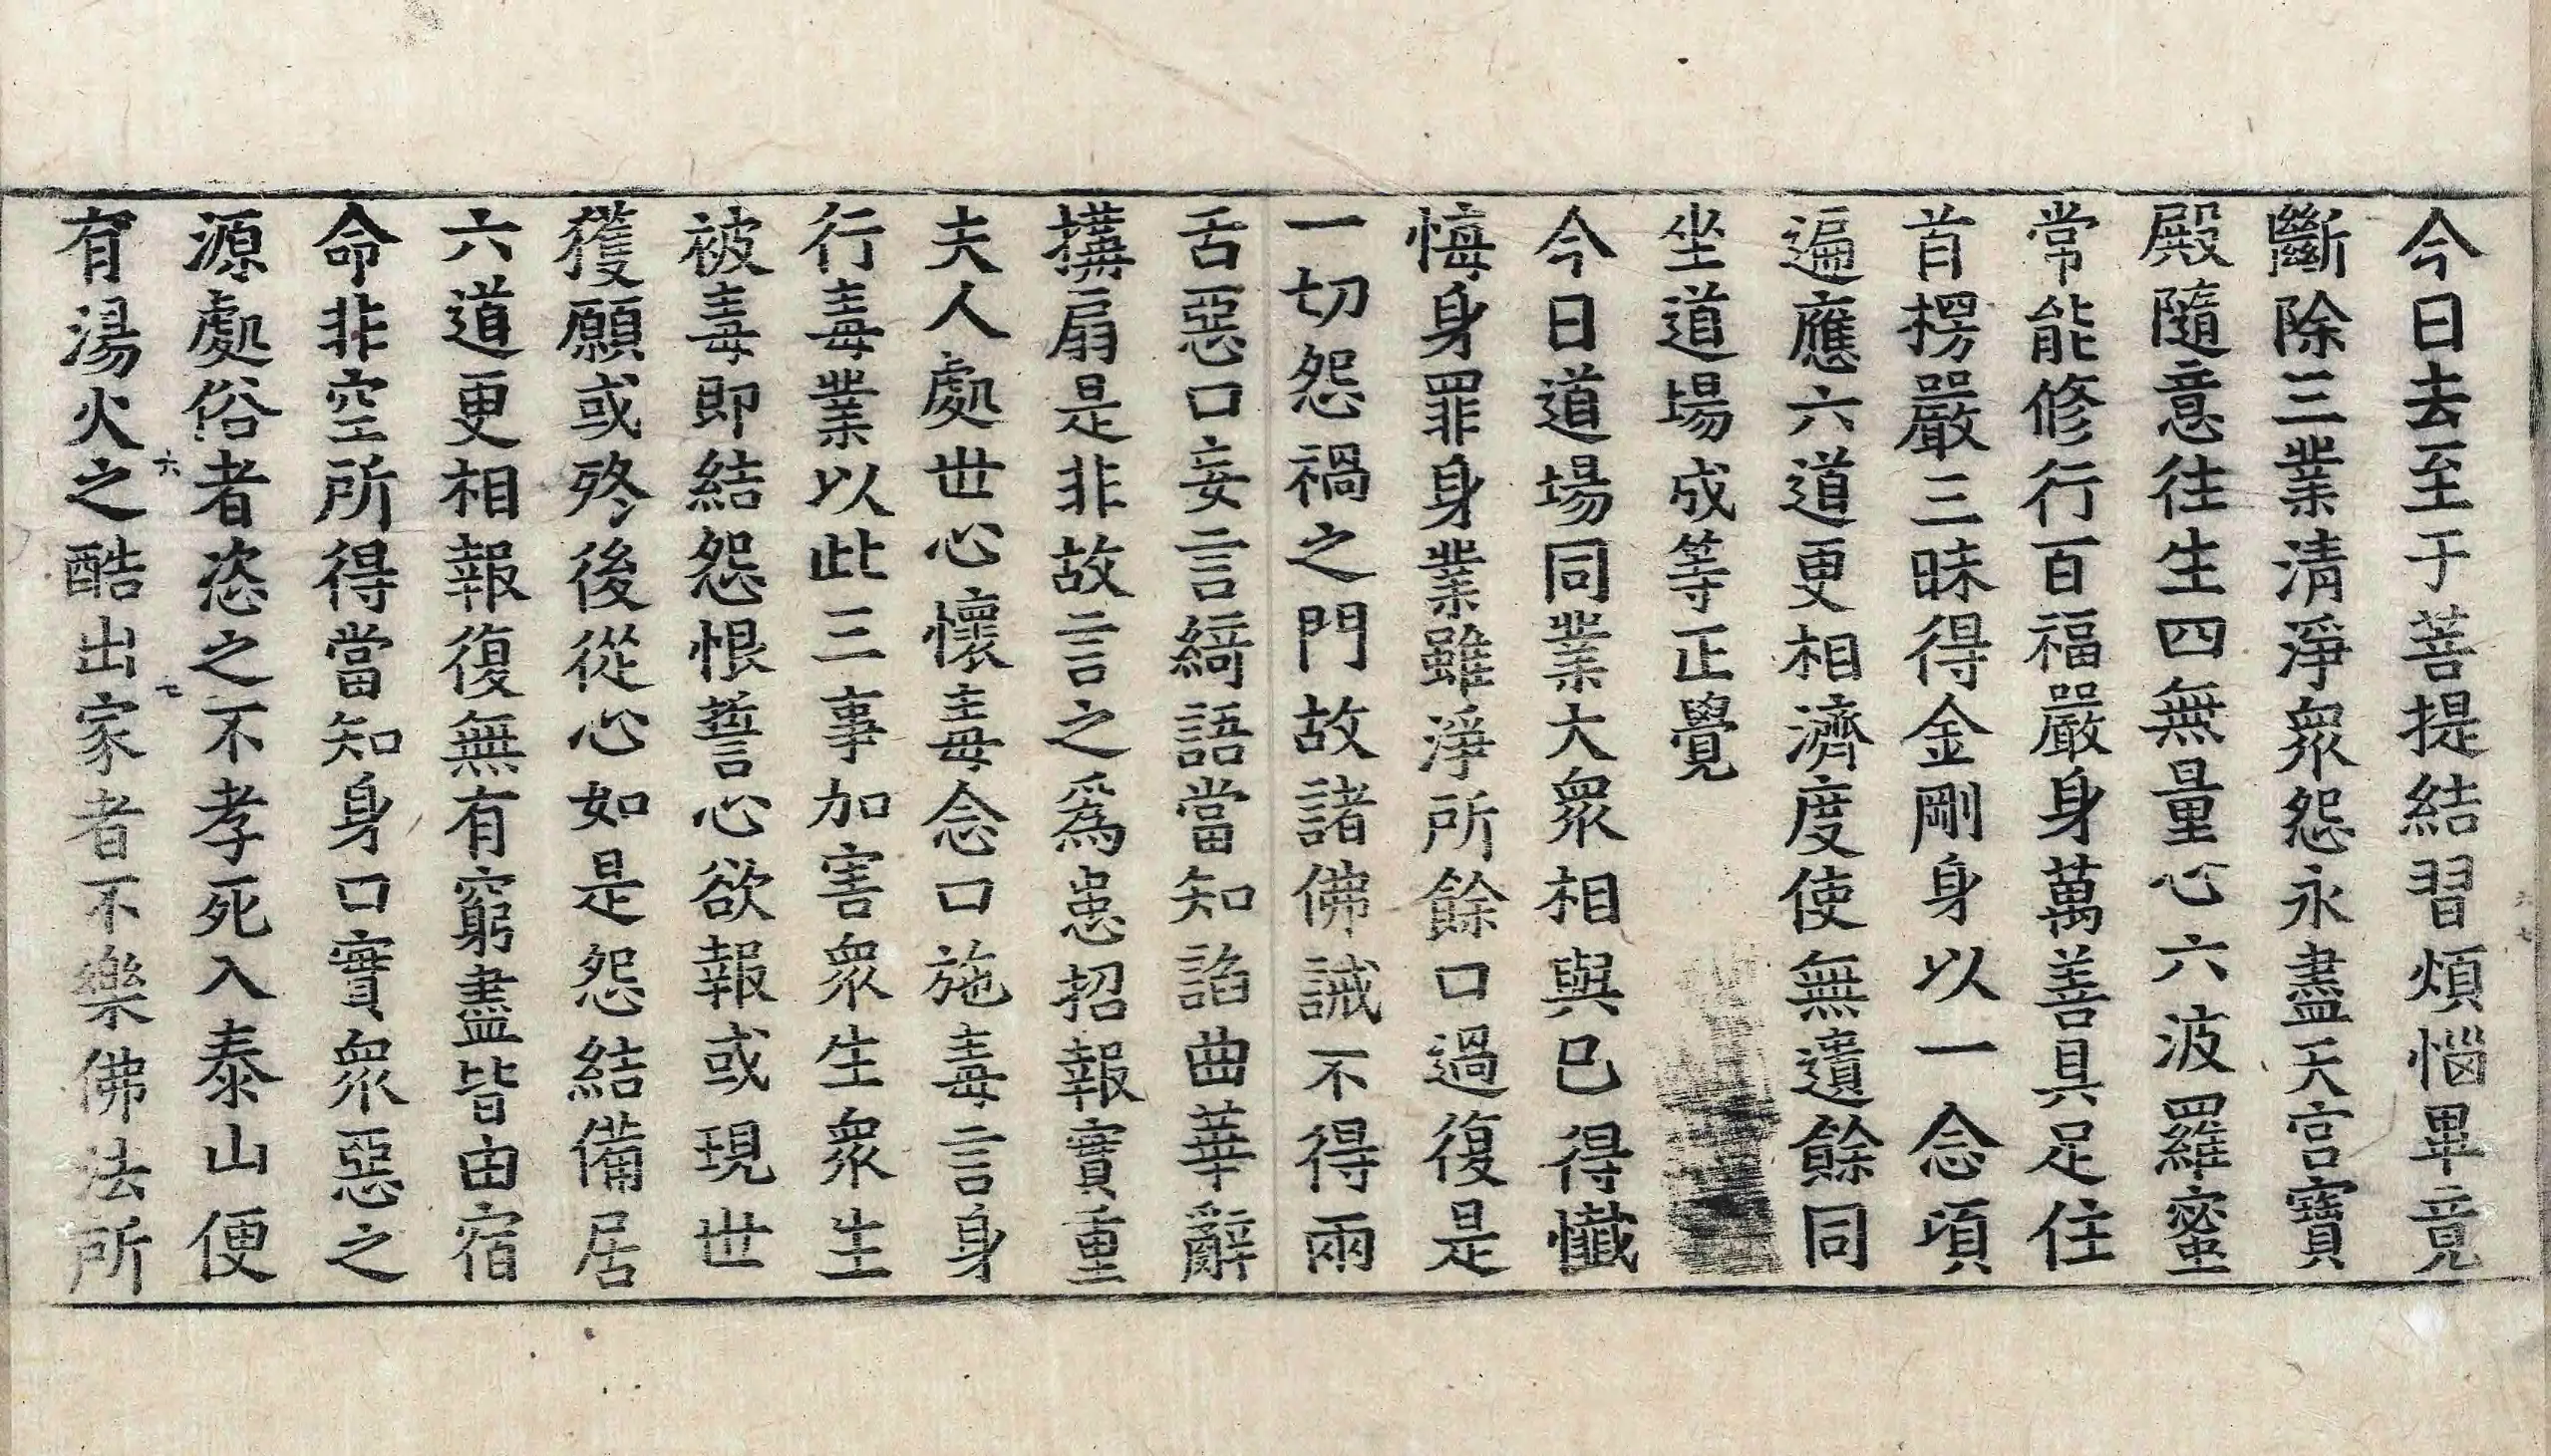 今日去至于菩提結習煩惱畢竟
斷除三業清淨衆怨永盡天宮寶
殿隨意往生四無量心六波羅蜜
常能修行百福嚴身萬善具足住
首楞嚴三昧得金剛身以一念頃
遍應六道更相濟度使無遺餘同
坐道場成等正覺
今日道場同業大衆相與已得懺
悔身罪身業雖淨所餘口過復是
一切怨禍之門故諸佛誡不得兩
舌惡口妄言綺語當知諂曲華辭
搆扇是非故言之爲患招報實重
夫人處世心懷毒念口施毒言身
行毒業以此三事加害衆生衆生
被毒即結怨恨誓心欲報或現世
獲願或終後從心如是怨結備居
六道更相報復無有窮盡皆由宿
命非空所得當知身口實衆惡之
源處俗者恣之不孝死入泰山便
六 七
有湯火之酷出家者不樂佛法所